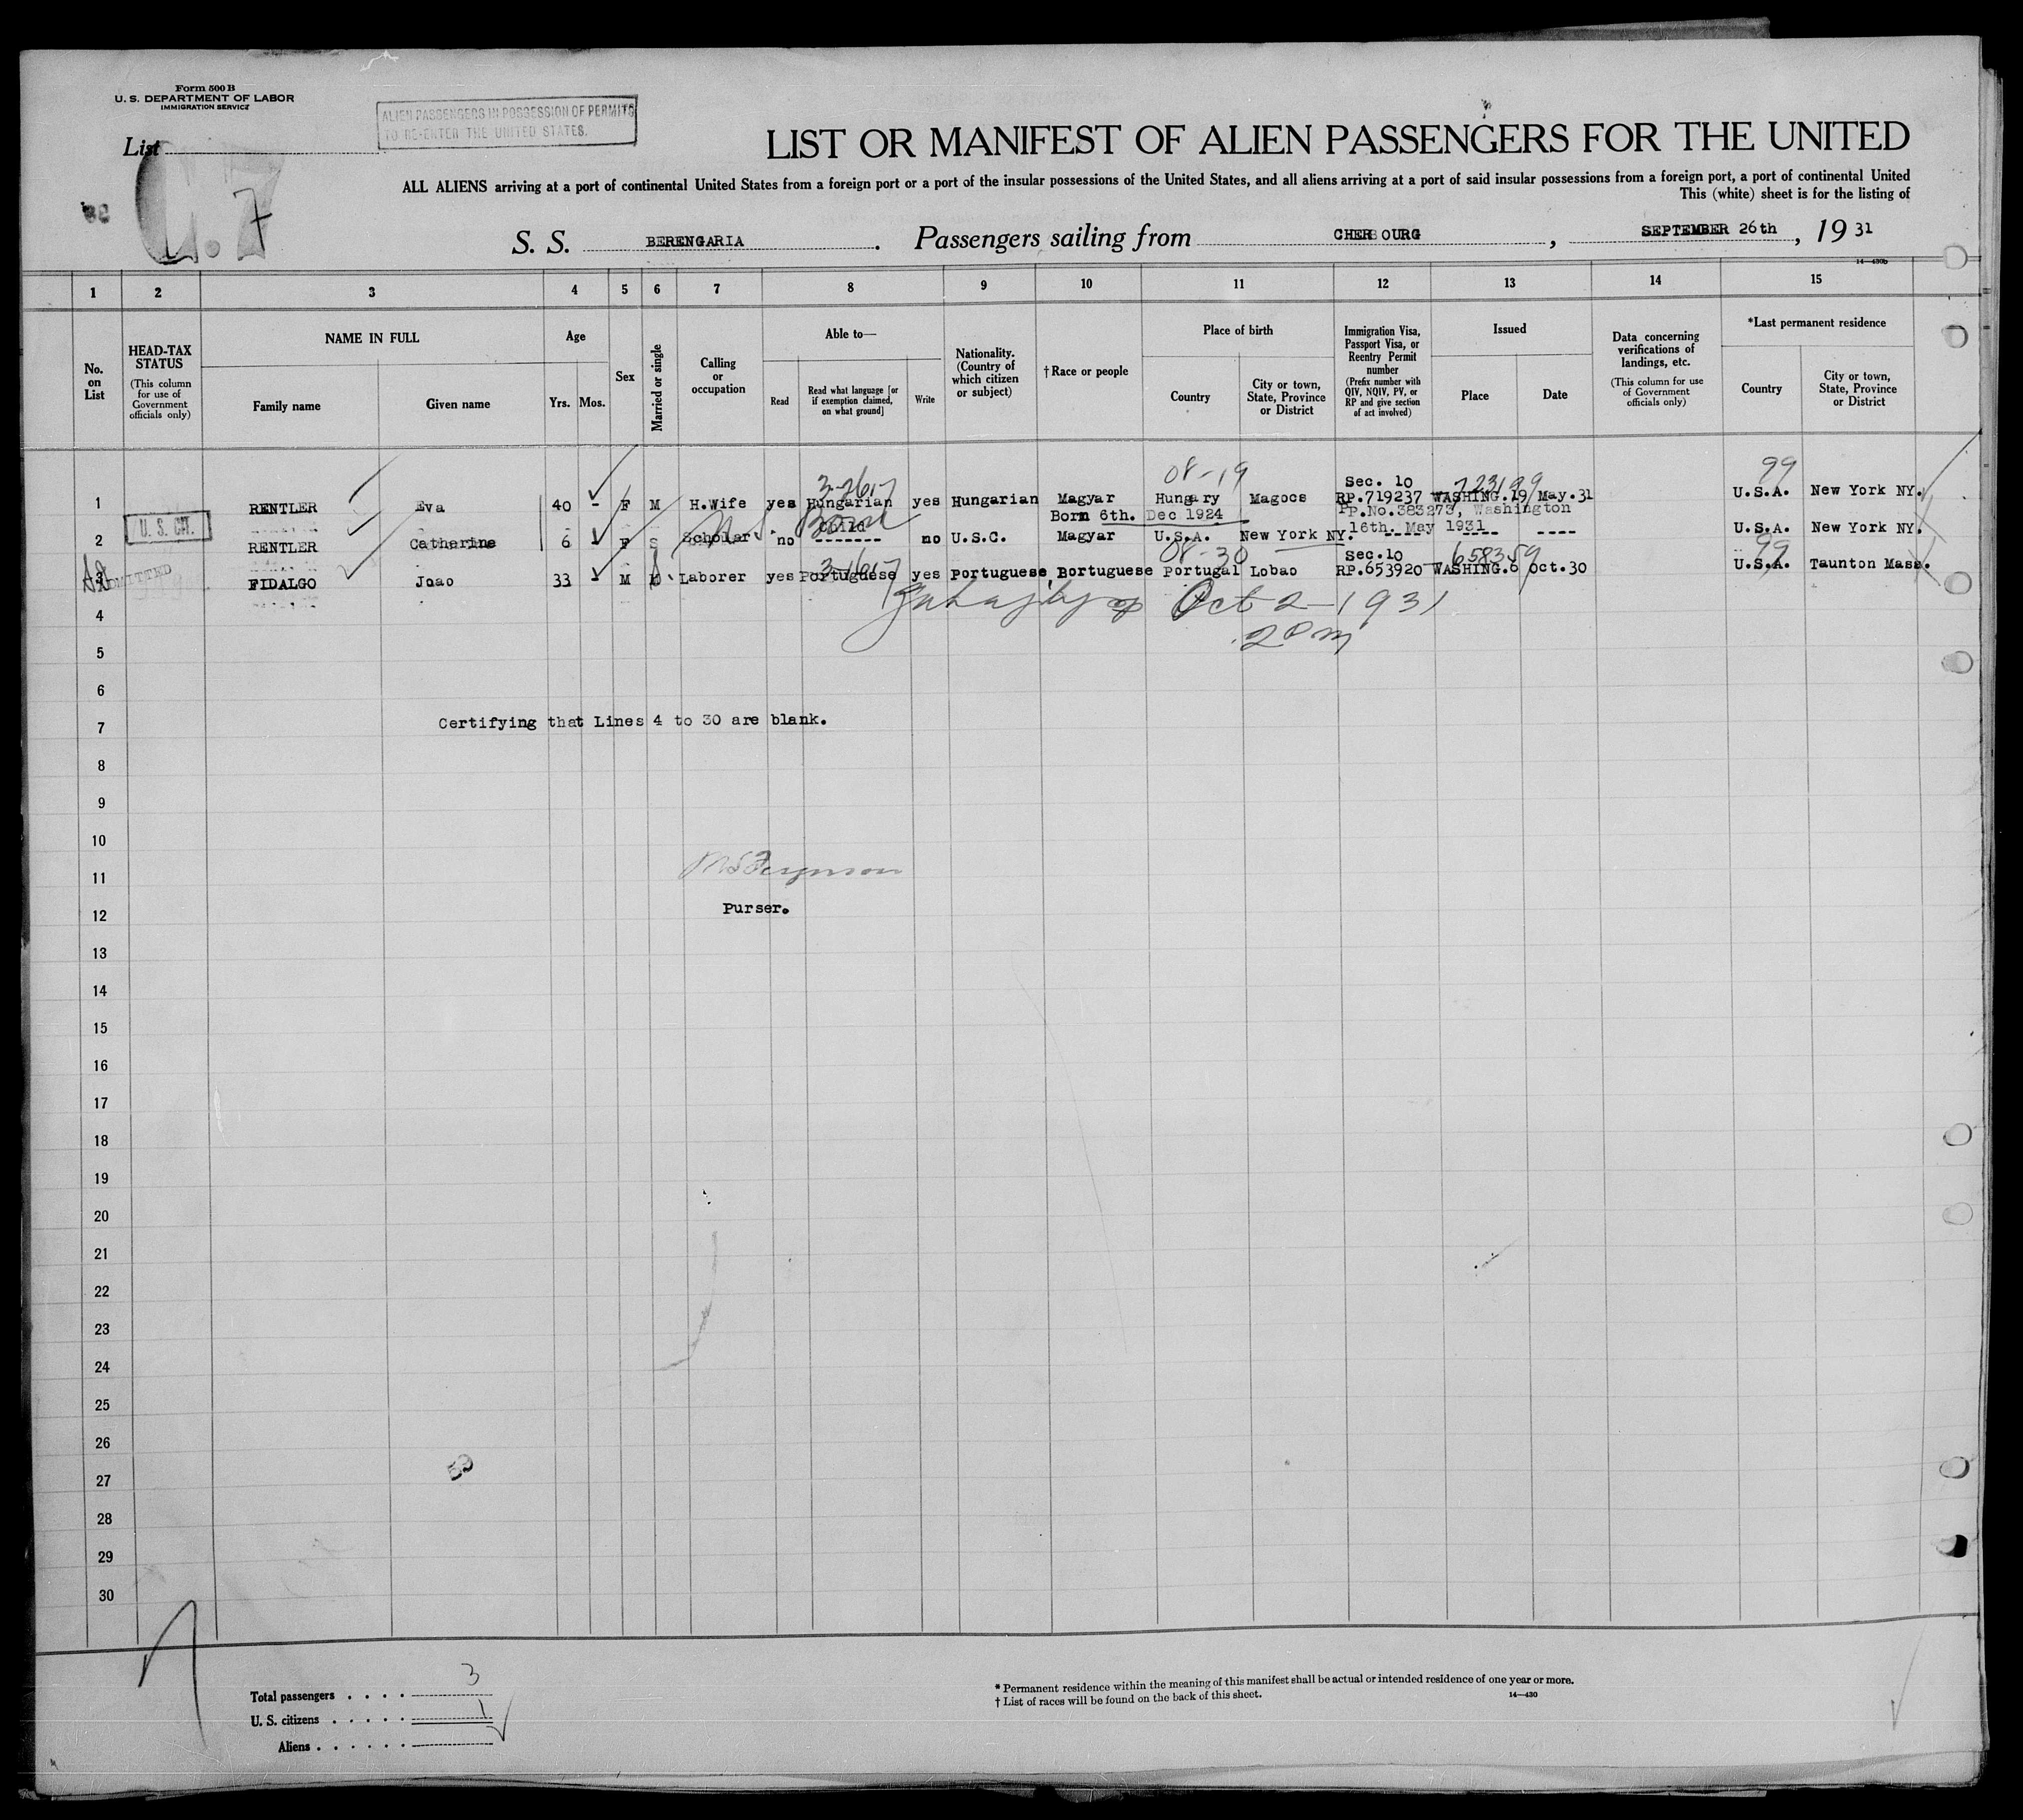 Form 500 B
U. S. DEPARTMENT OF LABOR
IMMIGRATION SERVICE
ALIEN PASSENGERS IN POSSESSION OF PERMITS
TO RE-ENTER THE UNITED STATES.
List
7
LIST OR MANIFEST OF ALIEN PASSENGERS FOR THE UNITED
ALL ALIENS arriving at a port of continental United States from a foreign port or a port of the insular possessions of the United States, and all aliens arriving at a port of said insular possessions from a foreign port, a port of continental United
This (white) sheet is for the listing of
S. S. BERENGARIA. Passengers sailing from CHERBOURG, SEPTEMBER 26th, 19 31
14—430b
1 2 3 4 5 6 7 8 9 10 11 12 13 14 15
No. on List
HEAD-TAX STATUS
(This column for use of Government officials only)
NAME IN FULL
Family name
Given name
Age
Yrs. Mos.
Sex
Married or single
Calling or occupation
Able to—
Read
Read what language [or if exemption claimed, on what ground]
Write
Nationality. (Country of which citizen or subject)
† Race or people
Place of birth
Country
City or town, State, Province or District
Immigration Visa, Passport Visa, or Reentry Permit number
(Prefix number with QIV, NQIV, PV, or RP and give section of act involved)
Issued
Place
Date
Data concerning verifications of landings, etc.
(This column for use of Government officials only)
*Last permanent residence
Country
City or town, State, Province or District
08-19 99
Sec. 10 723199
1 RENTLER Eva 40 - F M H.Wife yes Hungarian yes Hungarian Magyar Hungary Magocs RP.719237 WASHING. 19 May.31 U.S.A. New York NY.
Born 6th. Dec 1924 PP.No.383273, Washington
U. S. CIT. Child 16th. May 1931
2 RENTLER Catherine 6 - F S Scholar no ------- no U.S.C. Magyar U.S.A. New York NY. ---- ---- ---- U.S.A. New York NY.
08-30 Sec.10 658359 99
ADMITTED
3 FIDALGO Joao 33 - M M Laborer yes Portuguese yes Portuguese Portuguese Portugal Lobao RP.653920 WASHING. 6 Oct.30 U.S.A. Taunton Mass.
4 Oct 2-1931
5
6
7 Certifying that Lines 4 to 30 are blank.
8
9
10
11 Ferguson
12 Purser.
13
14
15
16
17
18
19
20
21
22
23
24
25
26
27
28
29
30
Total passengers . . . . 3
U. S. citizens . . . . . 1
Aliens . . . . . .
* Permanent residence within the meaning of this manifest shall be actual or intended residence of one year or more.
† List of races will be found on the back of this sheet.
14—430